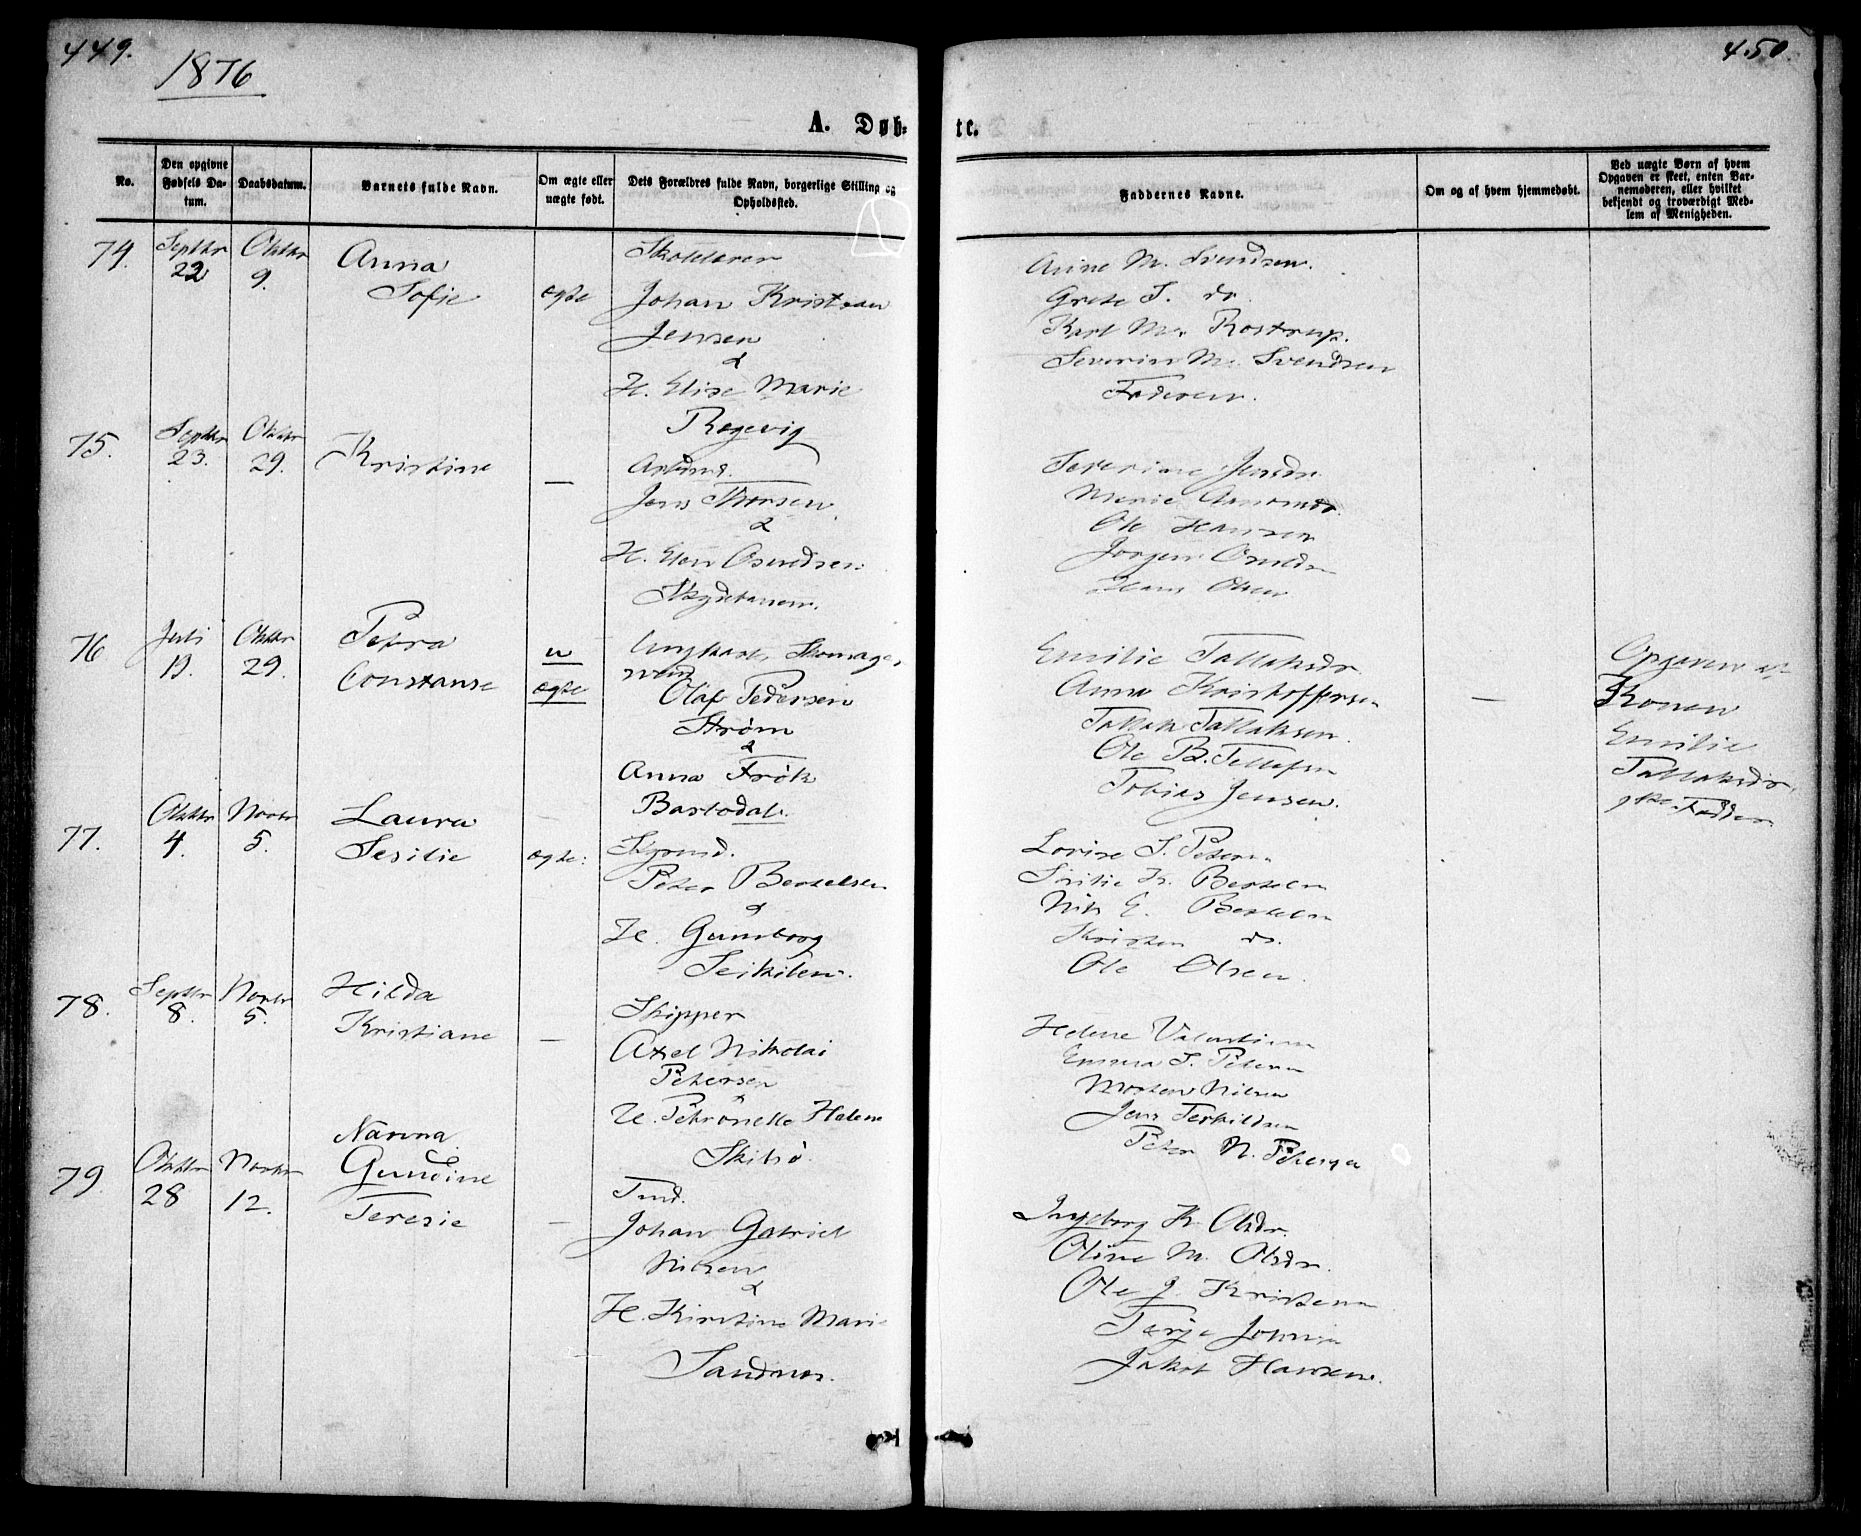 449.
1876
A. Døb-
No.
Den opgivne Fødsels Da-tum.
Daabsdatum.
Barnets fulde Navn.
Om ægte eller uægte født.
Dets Forældres fulde Navn, borgerlige Stilling og Opholdssted.
74.
Septbr 22
Oktbr 9.
Anna
Sofie
ægte
Skolelærer
Johan Kristian
Jensen
&
H. Elise Marie
Røgevig
75.
Septbr 23.
Oktbr 29.
Kristine
—
Arbmd.
Jens Thorsen
&
H. Elen Osmundsen
76
Juli 19.
Oktbr 29.
Petra
Constanse
u
ægte
Ungkarl, Skomager
Olaf Pedersen
Strøm
&
Anna Frøk
Barbodal.
77.
Oktbr 4.
Novbr 5.
Laura
Sesilie
ægte:
Peter Bertelsen
&
H. Gunborg
78.
Septbr 8.
Novbr 5.
Hilda
Kristiane
—
Skipper
Axel Nikolai
Petersen
&
H. Petronelle Helene
Skibsø.
79.
Oktbr 28
Novbr 12.
Nanna
Gundine
Teresie
—
Tmd.
Johan Gabriel
Nilsen
&
H. Kirstine Marie
Sandnes.
450.
te.
Faddernes Navne.
Om og af hvem hjemmedøbt.
Ved uægte Børn af hvem
Opgaven er skeet, enten Bar-
nemoderen, eller hvilket
bekjendt og troværdigt Med-
lem af Menigheden.
Anne M. Svendsen.
Grete S. do.
Karl M. Rostrup.
Severin M. Svendsen
Faderen.
Severine Jensdr.
Marie
Ole Hansen
Jørgen
Hans Olsen
Emilie Tallaksdr.
Anna Kristoffersen
Tallak Tallaksen.
Ole B. Tellefsen
Tobias Jensen.
—
Opgaven af
Konen
Emilie
Tallaksdr,
Fadder
Lovise S. Petersen
H. Bertelsen
Nils E. Bertelsen
do.
Ole Olsen.
Helene Valentinsen
Emma S. Petersen
Morten Nilsen
Jens Terkildsen
Peter N. Petersen
Ingeborg K. Olsdr.
Oline M. Olsdr.
Ole J. Kristensen
Terje Johnsen
Jakob Hansen.